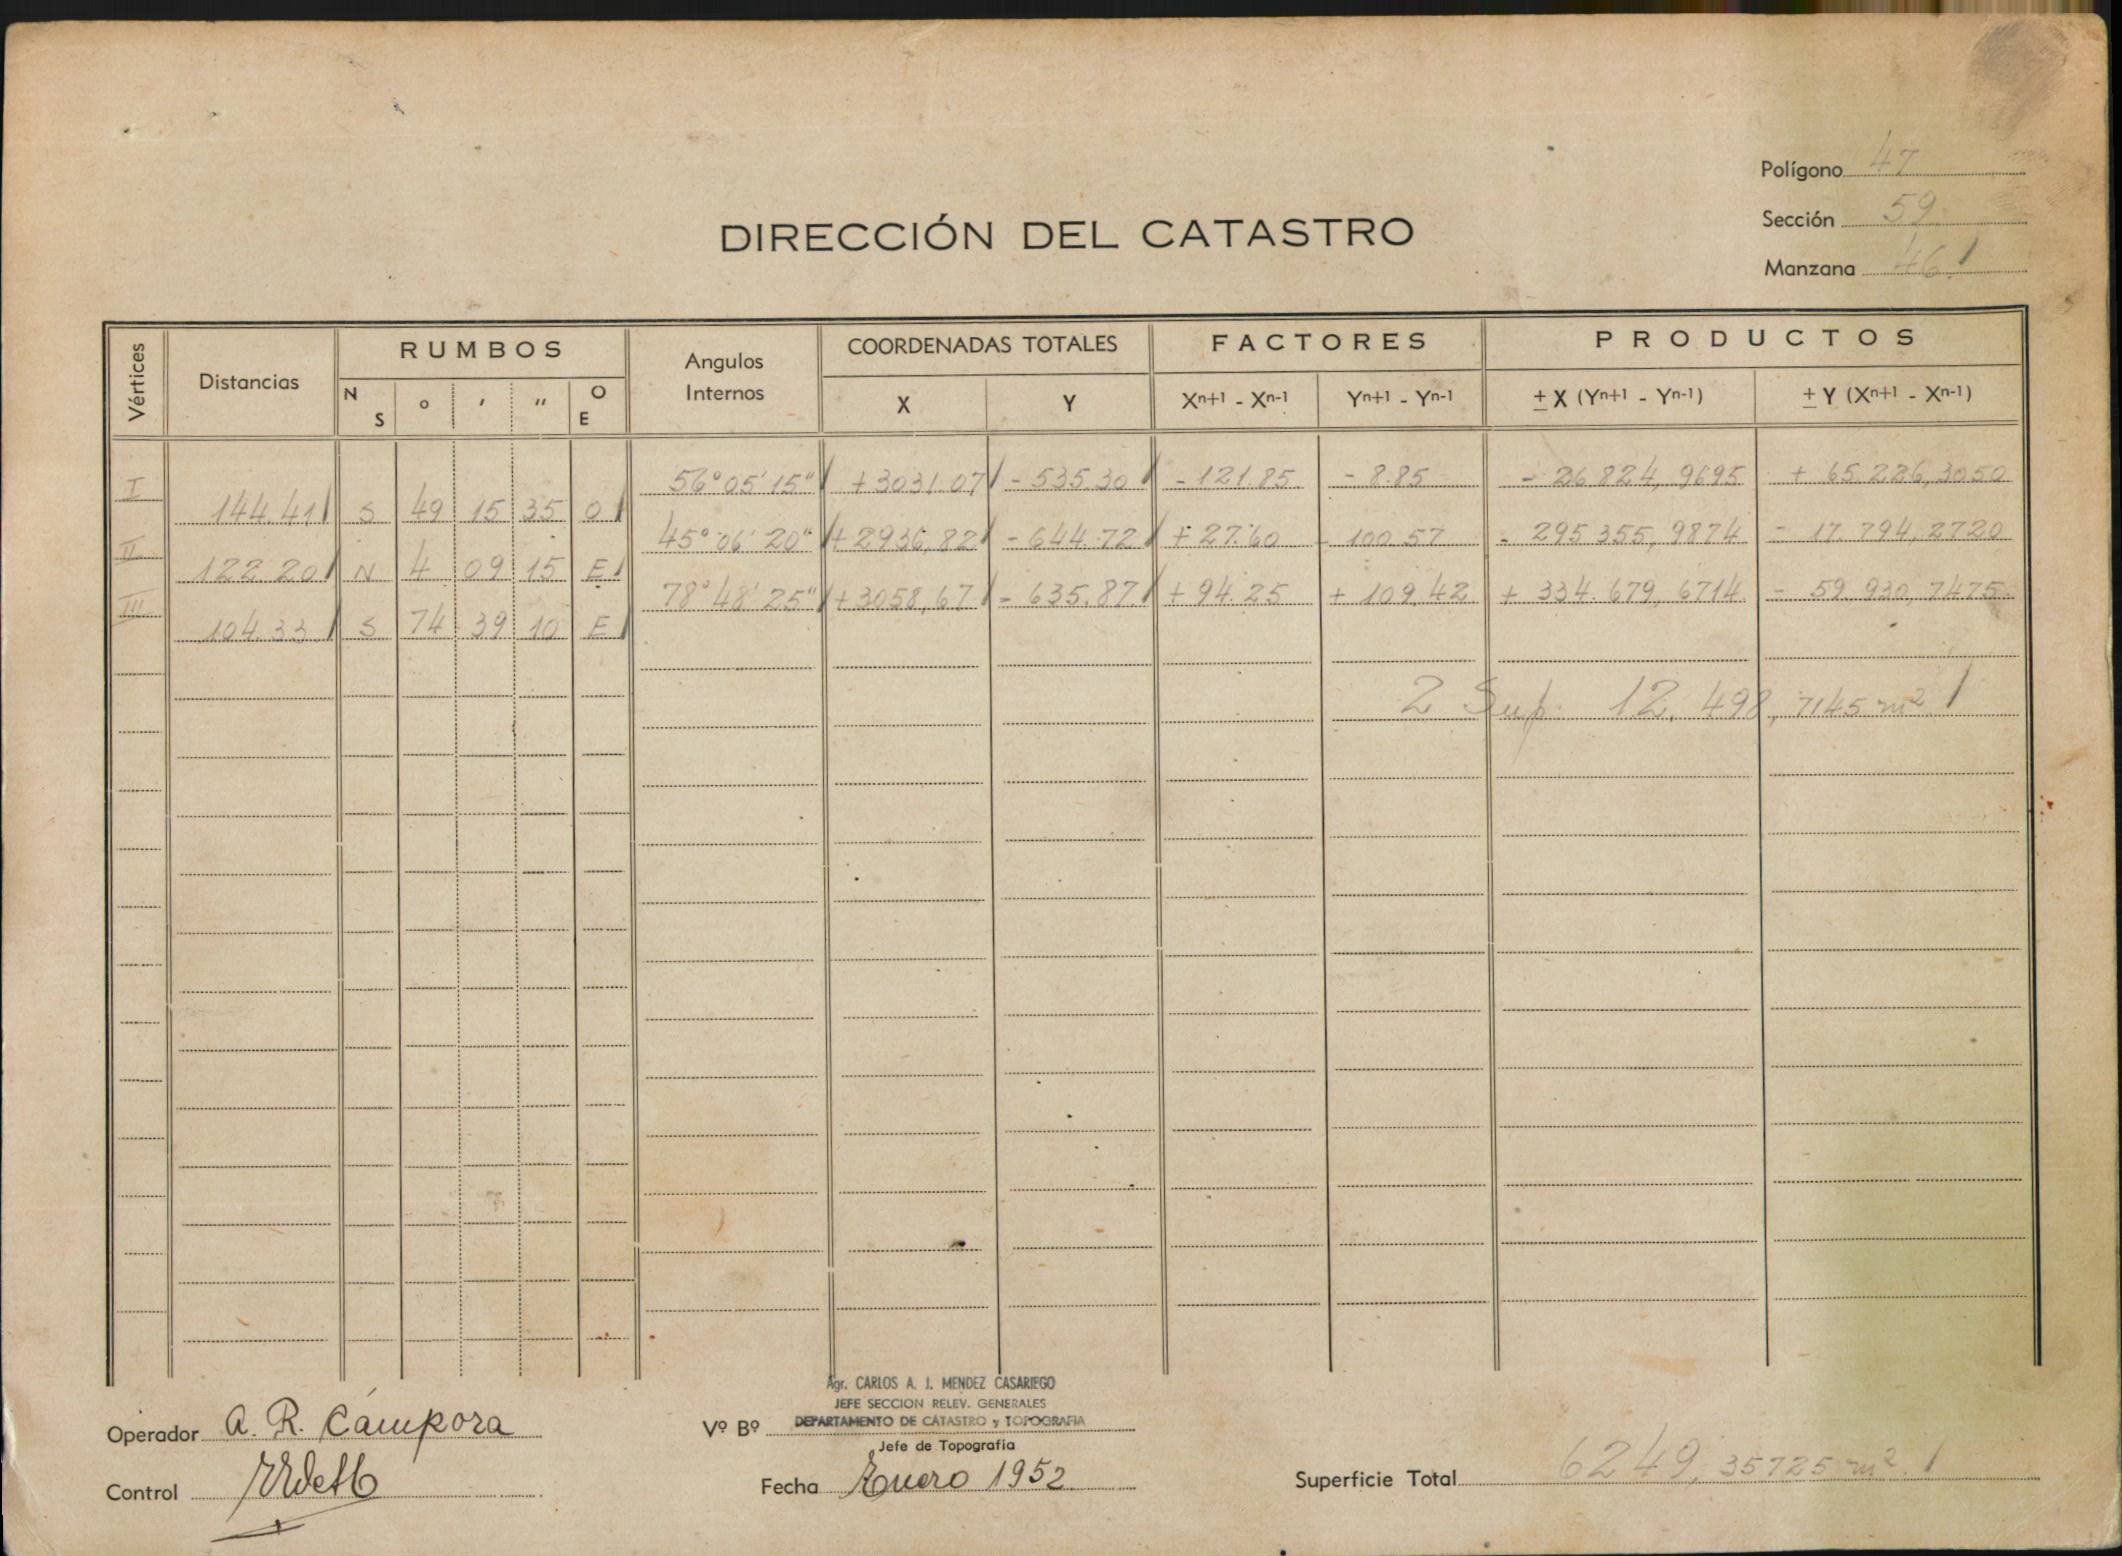 Polígono 47
Sección 59
Manzana 46
DIRECCIÓN DEL CATASTRO
Vértices Distancias RUMBOS Angulos Internos COORDENADAS TOTALES FACTORES PRODUCTOS
N S ° ' " O E X Y Xn+1 - Xn-1 Yn+1 - Yn-1 ± X (Yn+1 - Yn-1) ± Y (Xn+1 - Xn-1)
I 56° 05' 15" +3031.07 - 535.30 - 121.85 - 8.85 - 26 824, 9695 + 65.226, 3050
144.41 S 49 15 35 O
II 45° 06' 20" + 2936,82 - 644.72 + 27.60 - 100.57 - 295 355, 9874 - 17.794, 2720
122.20 N 4 09 15 E
III 78° 48' 25" +3058,67 - 635.87 + 94.25 + 109.42 + 334.679, 6714 - 59 930, 7475
104.33 S 74 39 10 E
2 Sup. 12.498, 7145 m²
Operador A. R. Cámpora
Control
Vº Bº
Agr. CARLOS A. J. MENDEZ CASARIEGO
JEFE SECCION RELEV. GENERALES
DEPARTAMENTO DE CATASTRO y TOPOGRAFIA
Jefe de Topografía
Fecha Enero 1952
Superficie Total 6249, 35725 m².